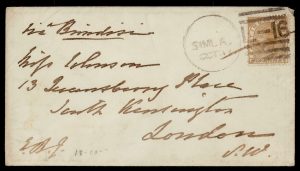 via Brindisi
Miss Johnson
13 Queensberry Place
South Kensington
London
S.W.
SIMLA
OCT